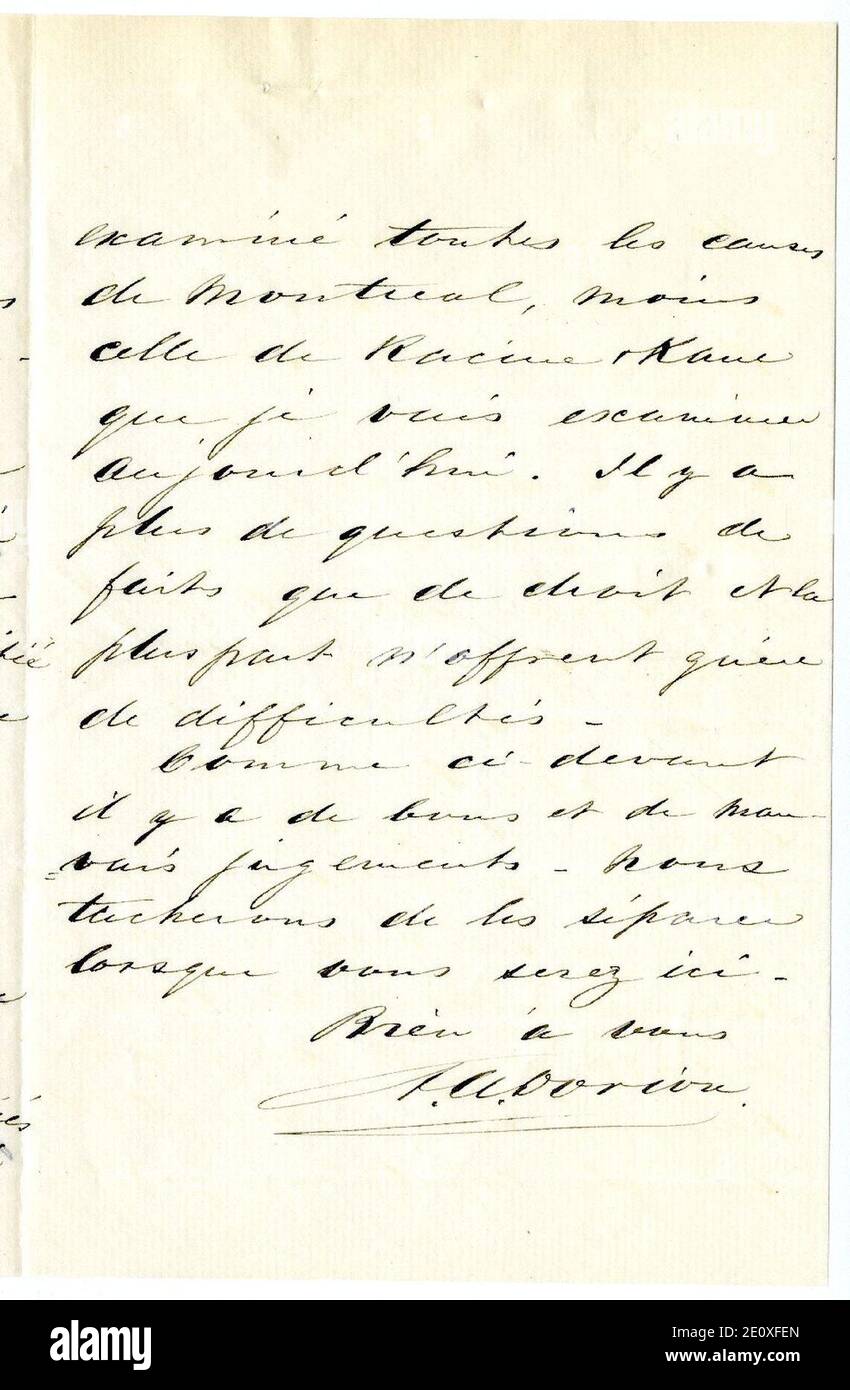 examiné toutes les causes
de Montreal, moins
celle de Racine & Kane
que je vais examiner
aujourd'hui. Il y a
plus de questions de
faits que de droit et la
plus part n'offrent guère
de difficultés -
Comme ci-devant
il y a de bons et de mau-
=vais jugements - nous
tacherons de les séparer
lorsque vous serez ici -
Bien à vous
A.A. Dorion.
alamy
Image ID: 2E0XFEN
www.alamy.com